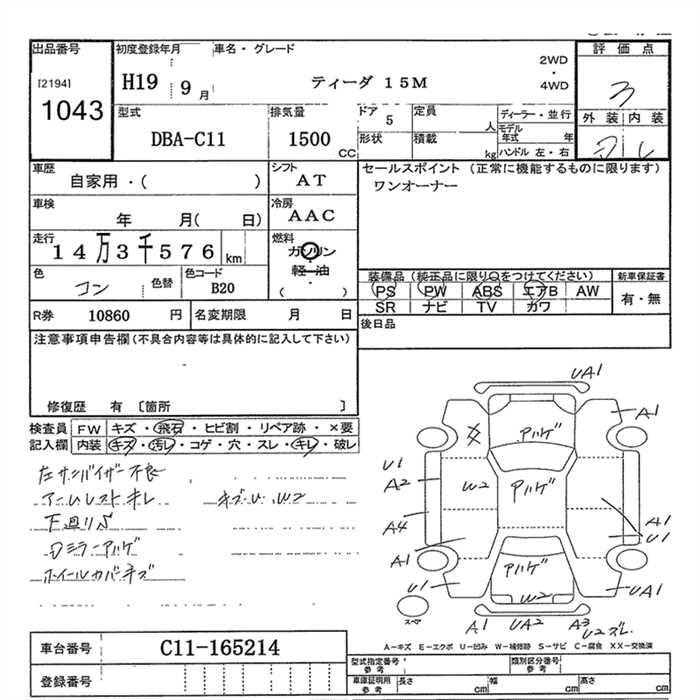 出品番号 初度登録年月 車名・グレード 評価点
[2194] H19 9月 ティーダ 15M 2WD・4WD 3
1043
型式 排気量 ドア 定員 ディーラー・並行 外装 内装
DBA-C11 1500 CC 5 人 モデル年式 年
形状 積載 kg ハンドル 左・右
車歴 シフト セールスポイント (正常に機能するものに限ります)
自家用・( ) AT ワンオーナー
車検 冷房
年 月( 日) AAC
走行 燃料
14万3千576 km ガソリン・軽油
( )
色 色替 色コード 装備品 (純正品に限り○をつけてください) 新車保証書
コン B20 PS PW ABS エアB AW 有・無
SR ナビ TV カワ
R券 10860 円 名変期限 月 日 後日品
注意事項申告欄 (不具合内容等は具体的に記入して下さい)
修復歴 有 〔箇所 〕
検査員 FW キズ・飛石・ヒビ割・リペア跡・×要
記入欄 内装 キズ・汚レ・コゲ・穴・スレ・キレ・破レ
左サンバイザー不良
アームレストキレ キズ・U・W2
下廻りS
Dミラーアハゲ
ホイールカバーキズ
UA1
A1
アハゲ
U1
A2 W2 アハゲ
A4 A1
U1
A1
U1 アハゲ UA1
W2
スペア A1 UA2 A3
U2ズレ
A－キズ E－エクボ U－凹み W－補修跡 S－サビ C－腐食 XX－交換済
車台番号 C11-165214
登録番号
型式指定番号 参考 類別区分番号 参考
車庫証明用 参考 長さ cm 幅 cm 高さ cm